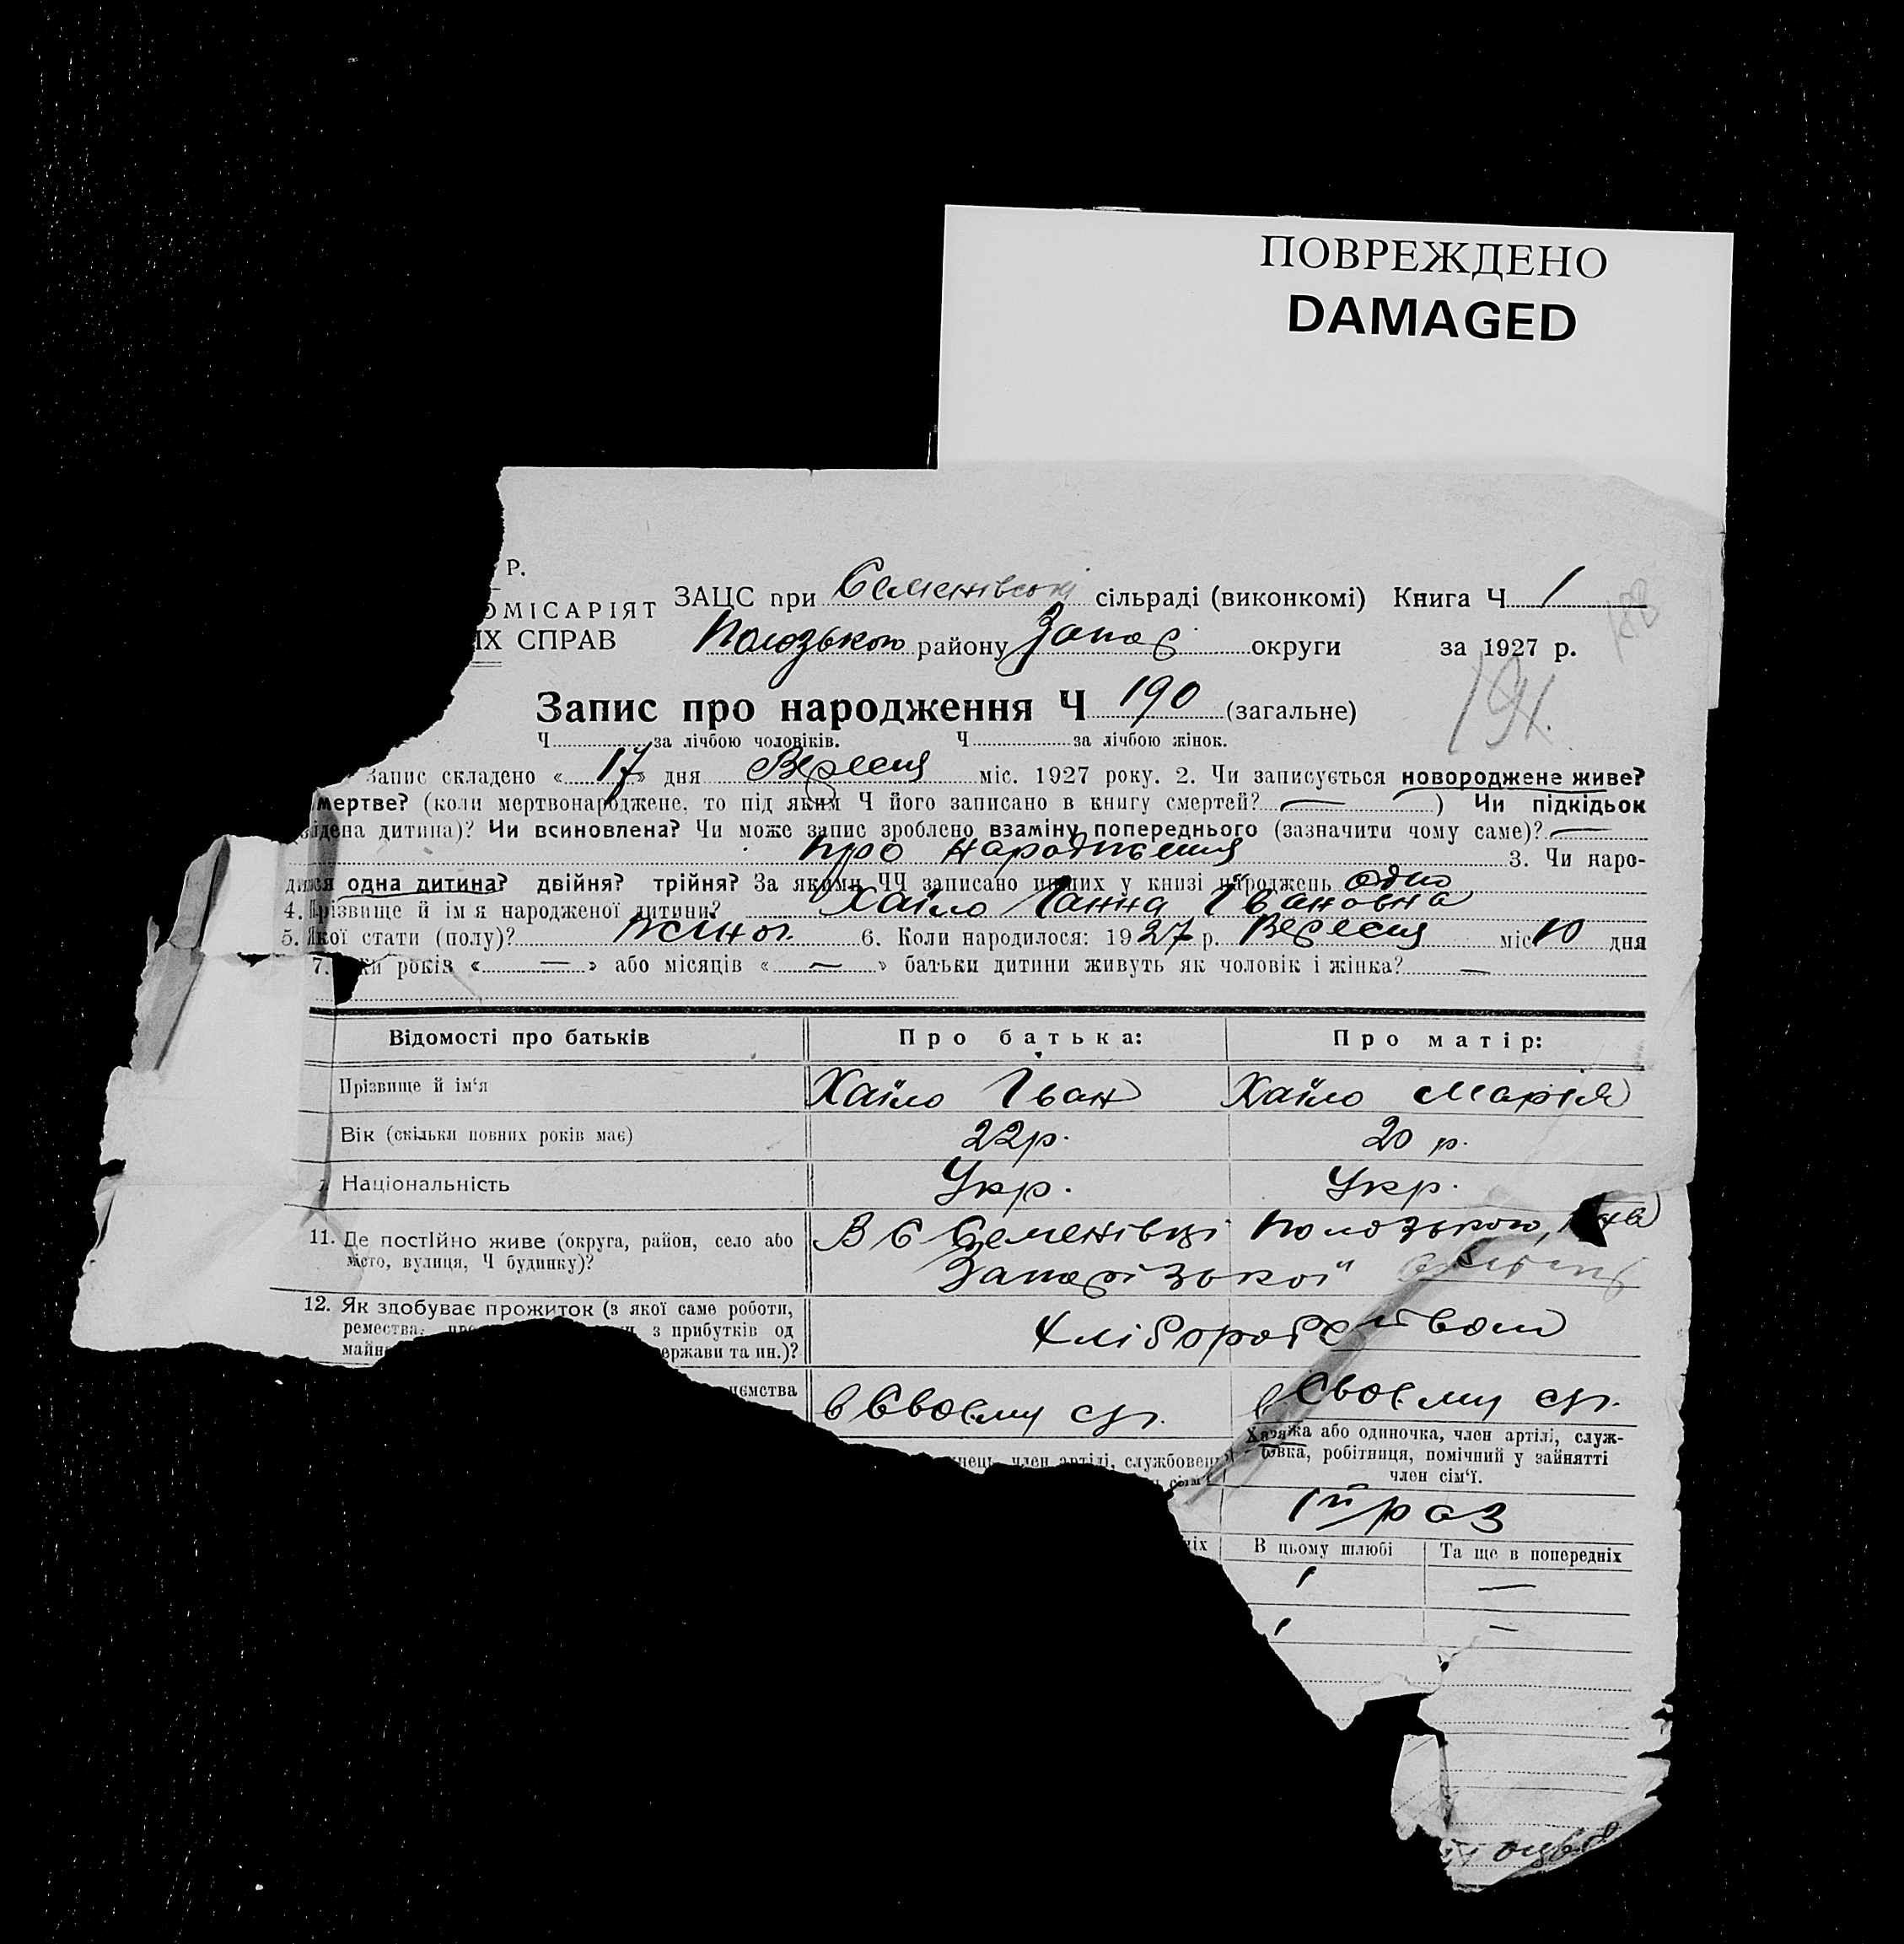 ПОВРЕЖДЕНО
DAMAGED
Р.
ОМІСАРІЯТ
ИХ СПРАВ
ЗАЦС при Семенівські сільраді (виконкомі) Книга Ч 1
Пологзького району Запор округи за 1927 р.
191.
Запис про народження Ч 190 (загальне)
Ч за лічбою чоловіків. Ч за лічбою жінок.
Запис складено « 17 » дня Вересня міс. 1927 року. 2. Чи записується новороджене живе?
мертве? (коли мертвонароджене, то під яким Ч його записано в книгу смертей? — ) Чи підкідьок
дена дитина)? Чи всиновлена? Чи може запис зроблено взаміну попереднього (зазначити чому саме)? —
про народження 3. Чи наро-
дилися одна дитина? двійня? трійня? За якими ЧЧ записано инших у книзі народжень одно
4. Прізвище й ім я народженої дитини? Хаїло Ганна Івановна
5. Якої стати (полу)? жіноч. 6. Коли народилося: 1927 р. Вересня міс 10 дня
7. ки років « — » або місяців « — » батьки дитини живуть як чоловік і жінка? —
Відомості про батьків Про батька: Про матір:
Прізвище й ім'я Хаїло Іван Хаїло Марія
Вік (скільки повних років має) 22р. 20 р.
Національність Укр. Укр.
11. Де постійно живе (округа, район, село або В С Семенівці Полозького,
місто, вулиця, Ч будинку)? Запорізької
12. Як здобуває прожиток (з якої саме роботи,
ремества, з прибутків од хліборобством
майн ержави та ин.)?
иємства в Своєму гсп. в Своєму гсп.
Хазяйка або одиночка, член артілі, служ-
член артілі, службовець бовка, робітниця, помічний у зайнятті
сім член сім'ї.
1й раз
ніх В цьому шлюбі Та ще в попередніх
1 —
1 —